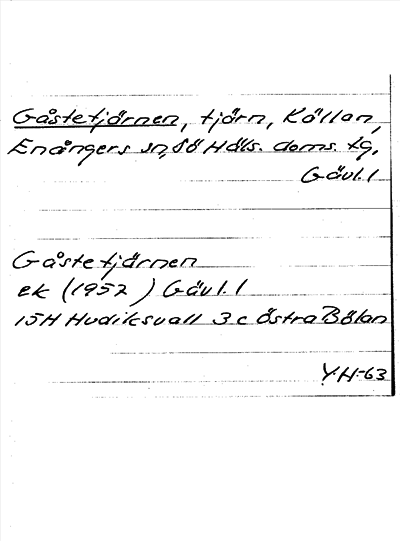 Gåstetjärnen, tjärn, Källan,
Enångers sn, Sö Häls. doms. tg,
Gävl. l
Gåstetjärnen
ek (1952 ) Gävl. l
15H Hudiksvall 3 c Östra Bölan
Y.H-63